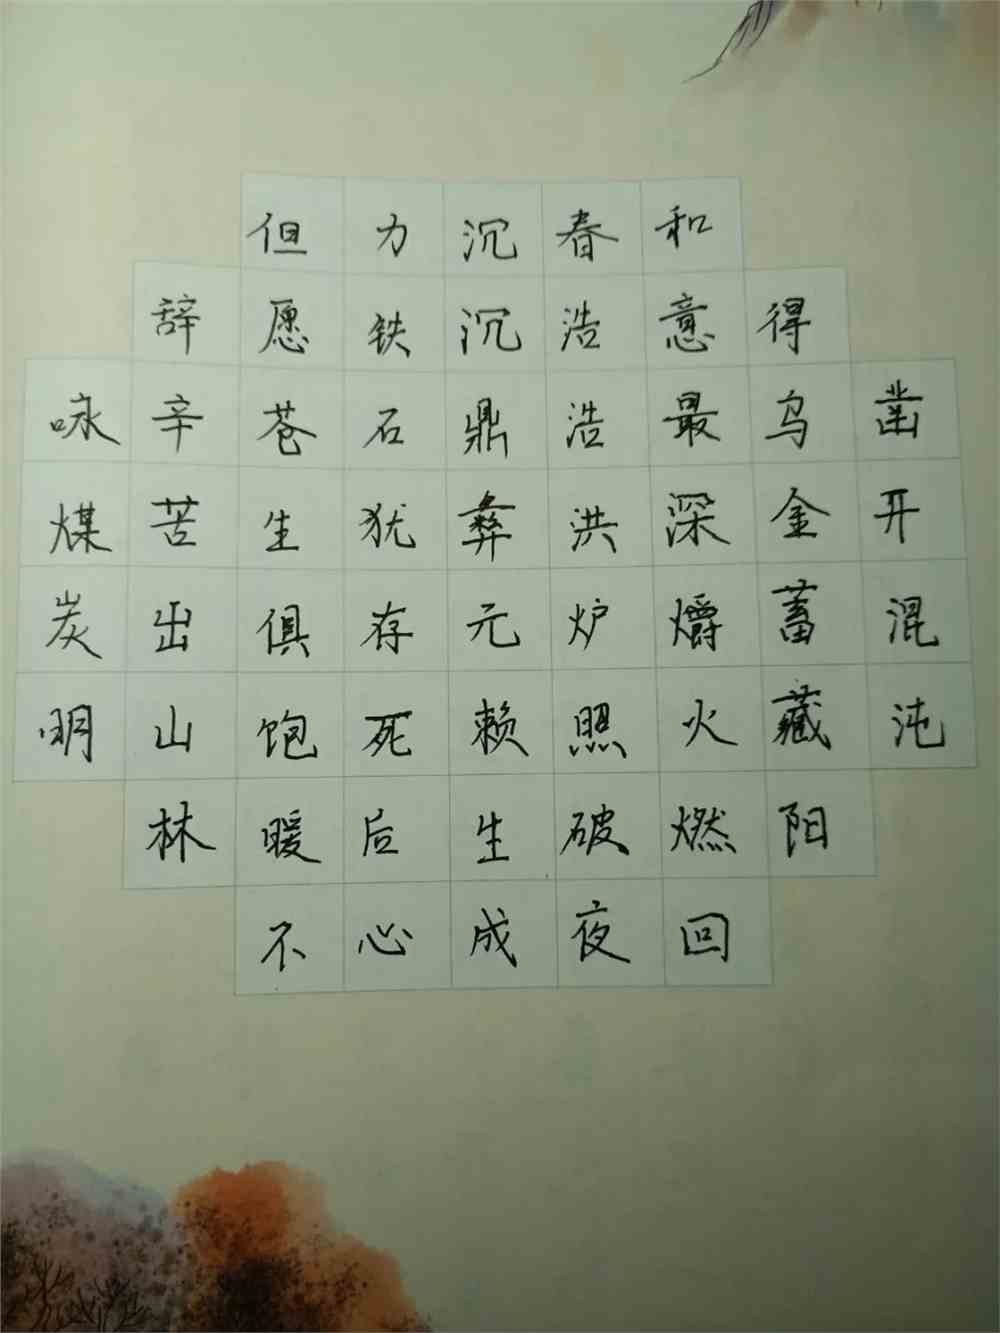 凿开混沌
得乌金蓄藏阳
和意最深爝火燃回
春浩浩洪炉照破夜
沉沉鼎彝元赖生成
力铁石犹存死后心
但愿苍生俱饱暖不
辞辛苦出山林
咏煤炭明